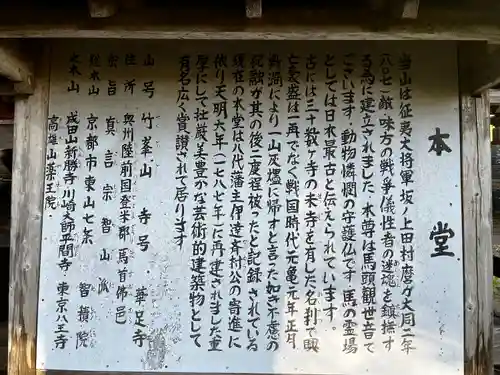 本堂
当山は征夷大将軍坂ノ上田村麿が大同二年
(八〇七)敵味方の戦争儀牲者の迷魂を鎮撫す
る為に建立されました。本尊は馬頭観世音で
ございます。動物憐憫の守護仏です。馬の霊場
としては日本最古と伝えられています。
古には三十数ヶ寺の末寺を有した名刹で興
亡衰盛は一再でなく戦国時代元亀元年正月
野火に依り一山灰燼に帰すと言った如き不慮の
祝融が其の後二度程被ったと記録されている
現在の本堂は八代藩主伊達斉村公の寄進に
依り天明六年(一七八七年)に再建されました重
厚にして壮厳美豊かな芸術的建築物として
有名広く賞讃されて居ります
山号 竹峯山 寺号 華足寺
住所 奥州陸前国登米郡馬首佛邑
宗旨 真言宗智山派
総本山 京都市東山七条 智積院
大本山 成田山新勝寺 川崎大師平間寺 東京八王寺
高雄山薬王院